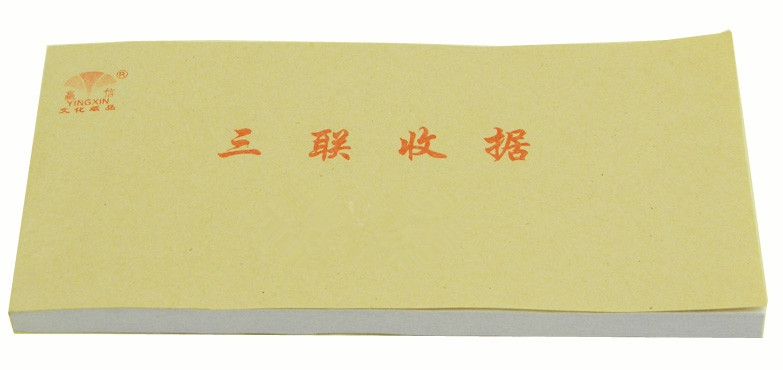 赢 信®
YINGXIN
文化纸品
三联收据